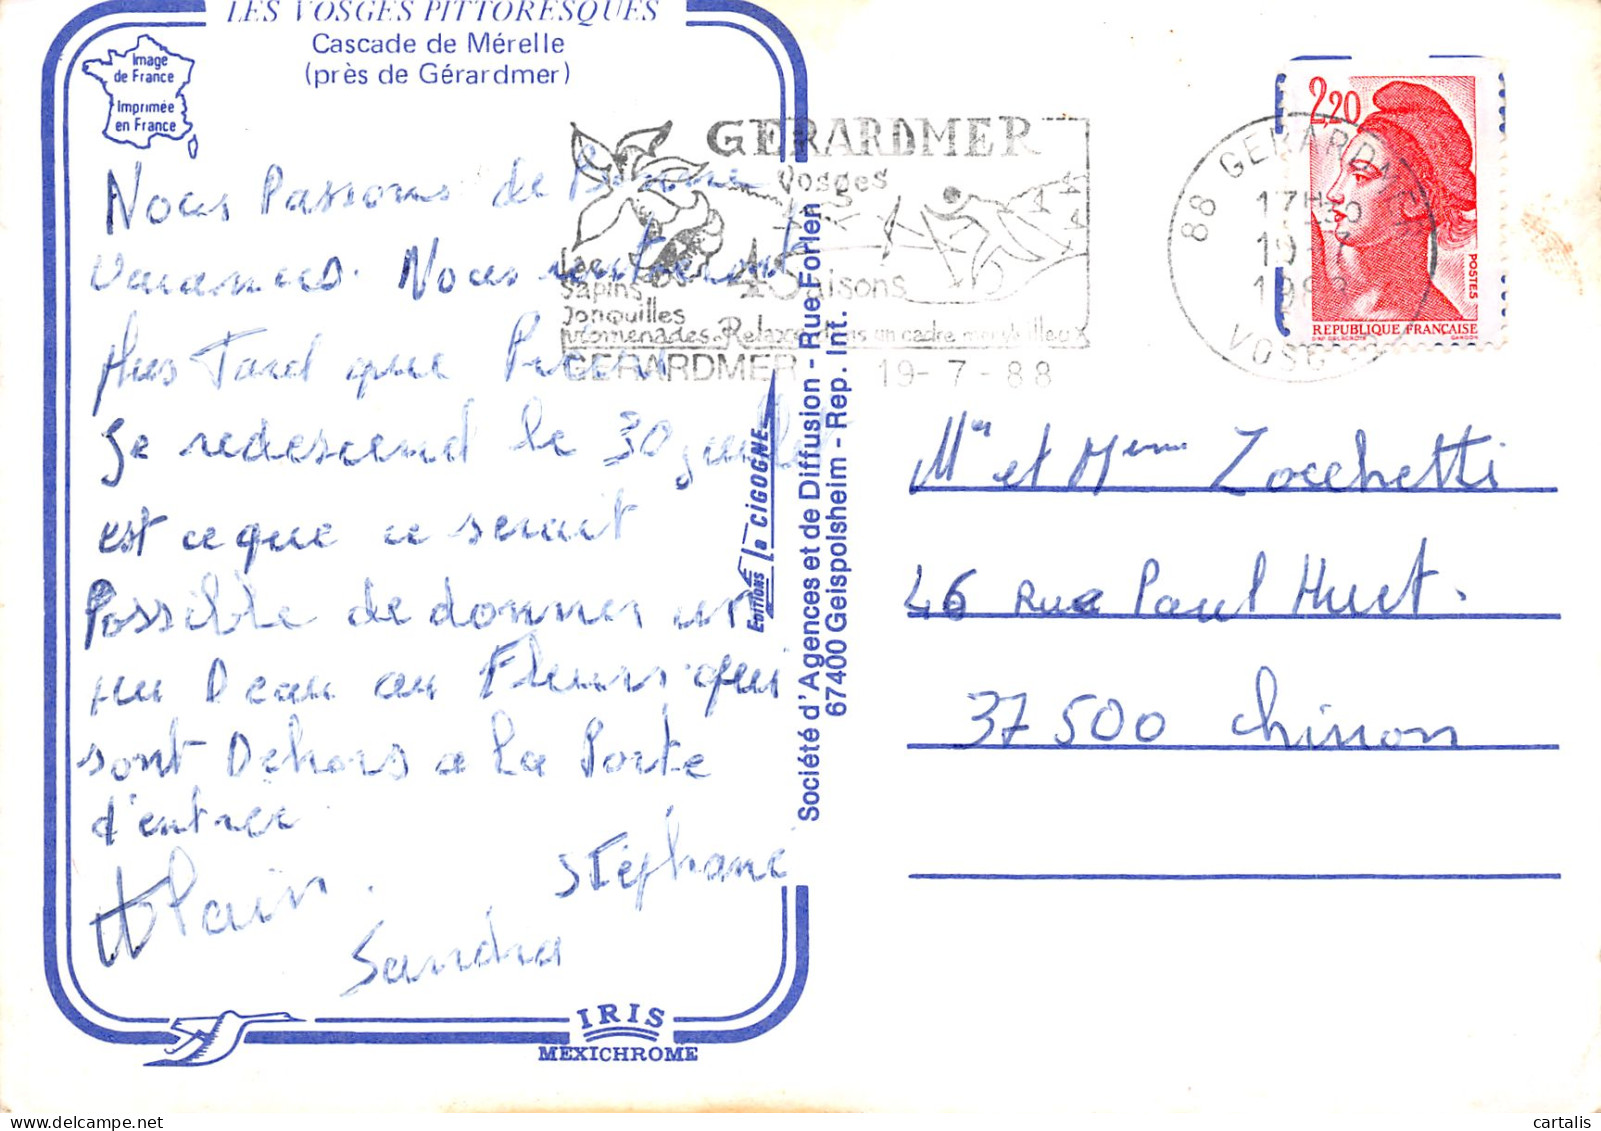 LES VOSGES PITTORESQUES
Cascade de Mérelle
(près de Gérardmer)
Image
de France
Imprimée
en France
Nous Passons de Bonne
vacances. Nous rentreront
Plus Tard que Prévu
Je redescend le 30 juillet
est ce que ce serait
Possible de donner un
peu D'eau au Fleurs qui
sont Dehors a la Porte
d'entrée
Alain.
Stéphane
Sandra
IRIS
MEXICHROME
EDITIONS la CIGOGNE
Société d'Agences et de Diffusion - Rue Forlen
67400 Geispolsheim - Rep. Int.
GERARDMER
Vosges
Lac
Sapins
Jonquilles
4 Saisons
promenades. Relaxez dans un cadre merveilleux
GERARDMER 19-7-88
88 GERARDMER
17H30
19-7
1988
VOSGES
2,20
POSTES
REPUBLIQUE FRANÇAISE
D'AP. DELACROIX GANDON
Mr et Mme Zocchetti
46 Rue Paul Huet.
37500 Chinon
cartalis.com